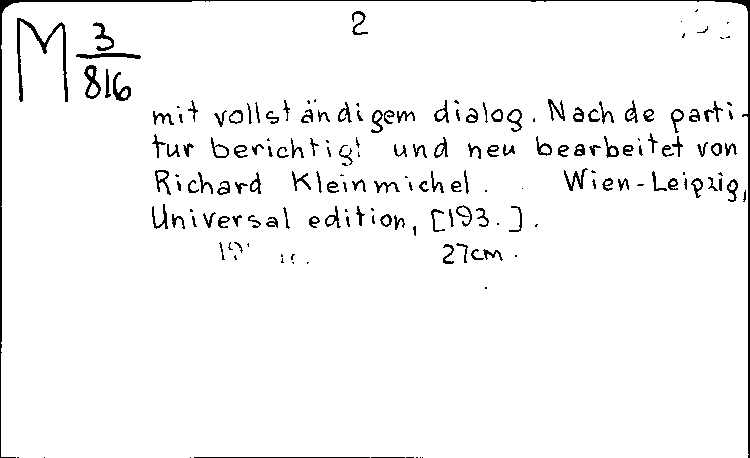 2
M 3/816
mit vollständigem dialog. Nach de parti-
tur berichtigt und neu bearbeitet von
Richard Kleinmichel. Wien-Leipzig,
Universal edition, [193.].
27cm.